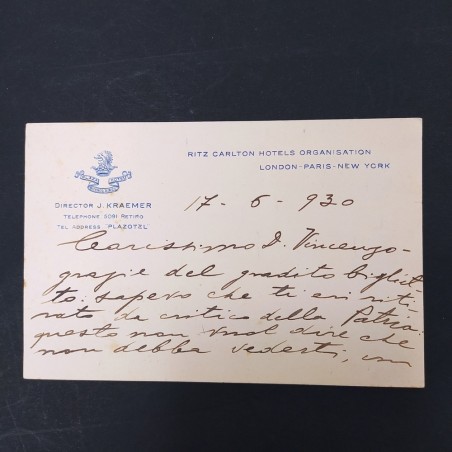 RITZ CARLTON HOTELS ORGANISATION
LONDON-PARIS-NEW YORK
DIRECTOR J. KRAEMER
TELEPHONE 3091 RETIRO
TEL ADDRESS "PLAZOTEL"
17-6-930
Carissimo D. Vincenzo-
grazie del gradito bigliet-
to: sapevo che ti eri riti-
rato da critico della Patria:
questo non vuol dire che
non debba vederti,